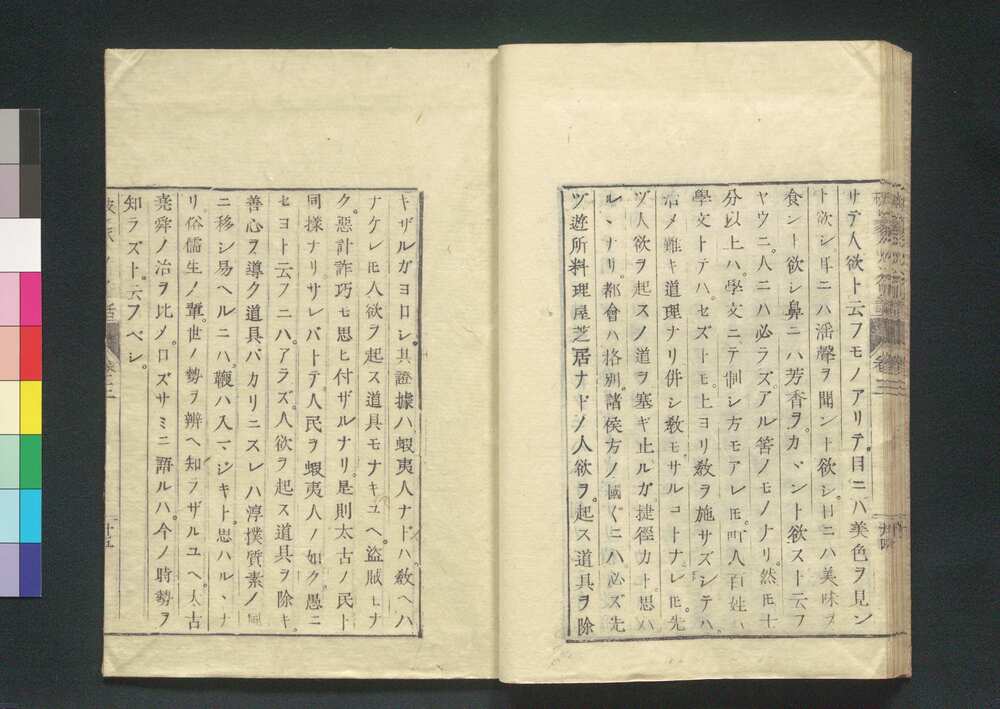 サテ人欲ト云フモノアリテ。目ニハ美色ヲ見ン
ト欲シ耳ニハ淫聲ヲ聞ント欲シ。口ニハ美味ヲ
食シト欲シ鼻ニハ芳香ヲ。カヾント欲スト云フ
ヤウニ。人ニハ必ラズ。アル筈ノモノナリ。然モ士
分以上ハ。學文ニテ制シ方モアレモ。町人百姓ハ
學文トテハ。セズトモ。上ヨリ教ヲ施サズシテハ。
治メ難キ道理ナリ併シ教モ。サルコトナレモ。先
ヅ人欲ヲ起スノ道ヲ塞ギ止ルガ捷徑カト。思ハ
ルヽナリ。都會ハ格別。諸侯方ノ國〲ニハ必ズ先
ヅ遊所料理屋芝居ナドノ人欲ヲ。起ス道具ヲ除
キザルガヨロシ。其證據ハ蝦夷人ナドハ。教ヘハ
ナケレモ人欲ヲ起ス道具モナキユヘ。盜賊モナ
ク。惡計詐巧モ思ヒ付ザルナリ。是則太古ノ民ト
同樣ナリ。サレバトテ。人民ヲ蝦夷人ノ如ク。愚ニ
セヨト云フニハ。アラズ。人欲ヲ起ス道具ヲ除キ。
善心ヲ導ク道具バカリニスレハ淳撲質素ノ風
ニ移シ易ヘルニハ。鞭ハ入マジキト。思ハルヽナ
リ俗儒生ノ輩。世ノ勢ヲ辨ヘ知ヲザルユヘ。太古
堯舜ノ治ヲ比メ。口ズサミニ語ルハ。今ノ時勢ヲ
知ラズト。云フベシ。